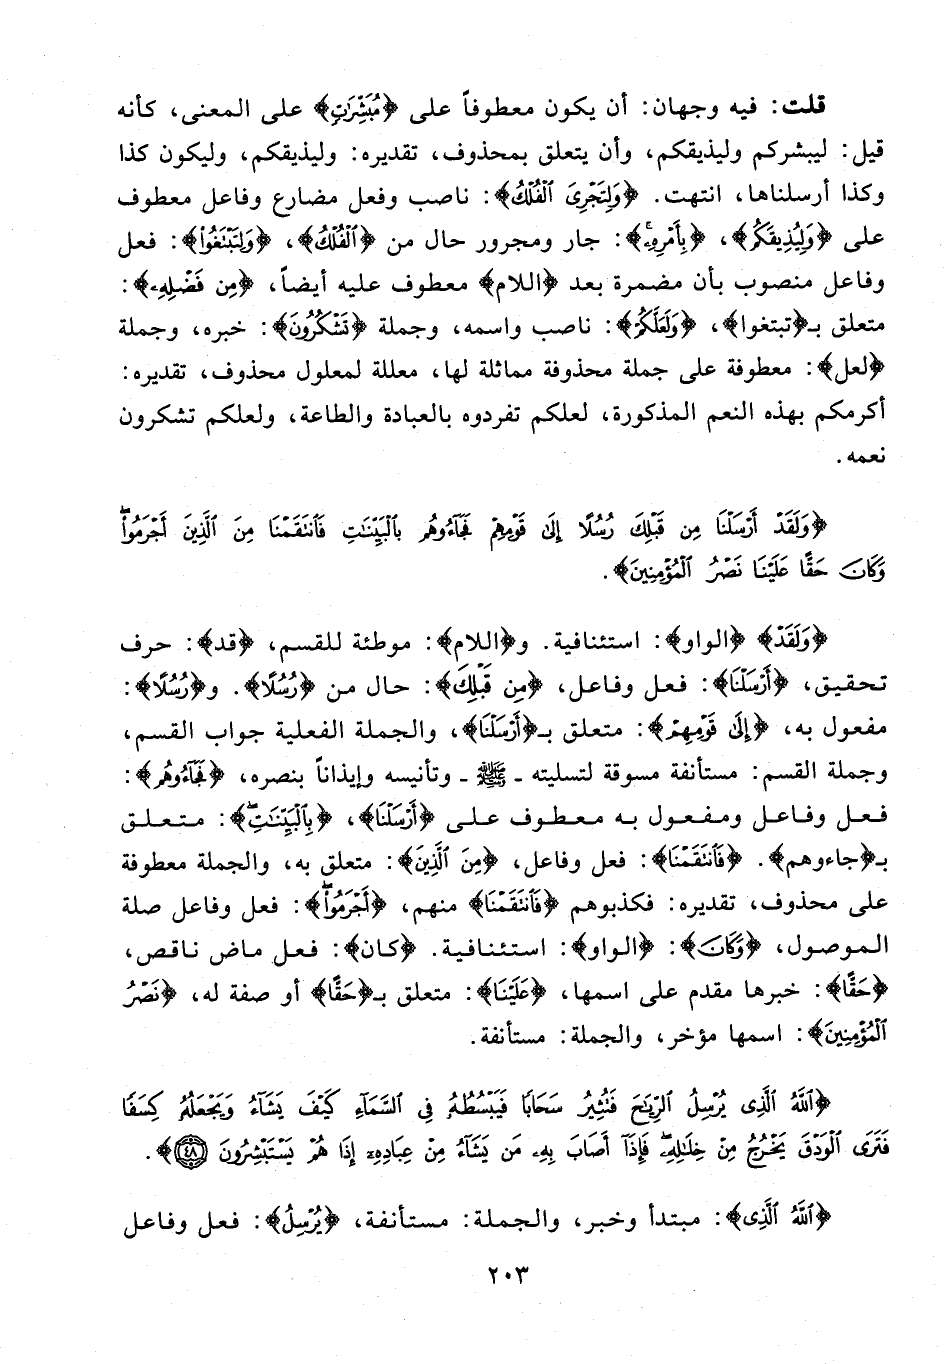 قلت: فيه وجهان: أن يكون معطوفاً على ﴿مُبَشِّرَٰتٍ﴾ على المعنى، كأنه
قيل: ليبشركم وليذيقكم، وأن يتعلق بمحذوف، تقديره: وليذيقكم، وليكون كذا
وكذا أرسلناها، انتهت. ﴿وَلِتَجْرِىَ ٱلْفُلْكُ﴾: ناصب وفعل مضارع وفاعل معطوف
على ﴿وَلِيُذِيقَكُمْ﴾، ﴿بِأَمْرِهِۦ﴾: جار ومجرور حال من ﴿ٱلْفُلْكُ﴾، ﴿وَلِتَبْتَغُوا۟﴾: فعل
وفاعل منصوب بأن مضمرة بعد ﴿اللام﴾ معطوف عليه أيضاً، ﴿مِن فَضْلِهِۦ﴾:
متعلق بـ﴿تبتغوا﴾، ﴿وَلَعَلَّكُمْ﴾: ناصب واسمه، وجملة ﴿تَشْكُرُونَ﴾: خبره، وجملة
﴿لعل﴾: معطوفة على جملة محذوفة مماثلة لها، معللة لمعلول محذوف، تقديره:
أكرمكم بهذه النعم المذكورة، لعلكم تفردوه بالعبادة والطاعة، ولعلكم تشكرون
نعمه.
﴿وَلَقَدْ أَرْسَلْنَا مِن قَبْلِكَ رُسُلًا إِلَىٰ قَوْمِهِمْ فَجَآءُوهُم بِٱلْبَيِّنَٰتِ فَٱنتَقَمْنَا مِنَ ٱلَّذِينَ أَجْرَمُوا۟ۖ
وَكَانَ حَقًّا عَلَيْنَا نَصْرُ ٱلْمُؤْمِنِينَ﴾.
﴿وَلَقَدْ﴾ ﴿الواو﴾: استئنافية. و﴿اللام﴾: موطئة للقسم، ﴿قد﴾: حرف
تحقيق، ﴿أَرْسَلْنَا﴾: فعل وفاعل، ﴿مِن قَبْلِكَ﴾: حال من ﴿رُسُلًا﴾. و﴿رُسُلًا﴾:
مفعول به، ﴿إِلَىٰ قَوْمِهِمْ﴾: متعلق بـ﴿أَرْسَلْنَا﴾، والجملة الفعلية جواب القسم،
وجملة القسم: مستأنفة مسوقة لتسليته ـ ﷺ ـ وتأنيسه وإيذاناً بنصره، ﴿فَجَآءُوهُم﴾:
فعل وفاعل ومفعول به معطوف على ﴿أَرْسَلْنَا﴾، ﴿بِٱلْبَيِّنَٰتِۖ﴾: متعلق
بـ﴿جاءوهم﴾. ﴿فَٱنتَقَمْنَا﴾: فعل وفاعل، ﴿مِنَ ٱلَّذِينَ﴾: متعلق به، والجملة معطوفة
على محذوف، تقديره: فكذبوهم ﴿فَٱنتَقَمْنَا﴾ منهم، ﴿أَجْرَمُوا۟ۖ﴾: فعل وفاعل صلة
الموصول، ﴿وَكَانَ﴾: ﴿الواو﴾: استئنافية. ﴿كان﴾: فعل ماض ناقص،
﴿حَقًّا﴾: خبرها مقدم على اسمها، ﴿عَلَيْنَا﴾: متعلق بـ﴿حَقًّا﴾ أو صفة له، ﴿نَصْرُ
ٱلْمُؤْمِنِينَ﴾: اسمها مؤخر، والجملة: مستأنفة.
﴿ٱللَّهُ ٱلَّذِى يُرْسِلُ ٱلرِّيَٰحَ فَتُثِيرُ سَحَابًا فَيَبْسُطُهُۥ فِى ٱلسَّمَآءِ كَيْفَ يَشَآءُ وَيَجْعَلُهُۥ كِسَفًا
فَتَرَى ٱلْوَدْقَ يَخْرُجُ مِنْ خِلَٰلِهِۦۖ فَإِذَآ أَصَابَ بِهِۦ مَن يَشَآءُ مِنْ عِبَادِهِۦٓ إِذَا هُمْ يَسْتَبْشِرُونَ ٤٨﴾.
﴿ٱللَّهُ ٱلَّذِى﴾: مبتدأ وخبر، والجملة: مستأنفة، ﴿يُرْسِلُ﴾: فعل وفاعل
٢٠٣